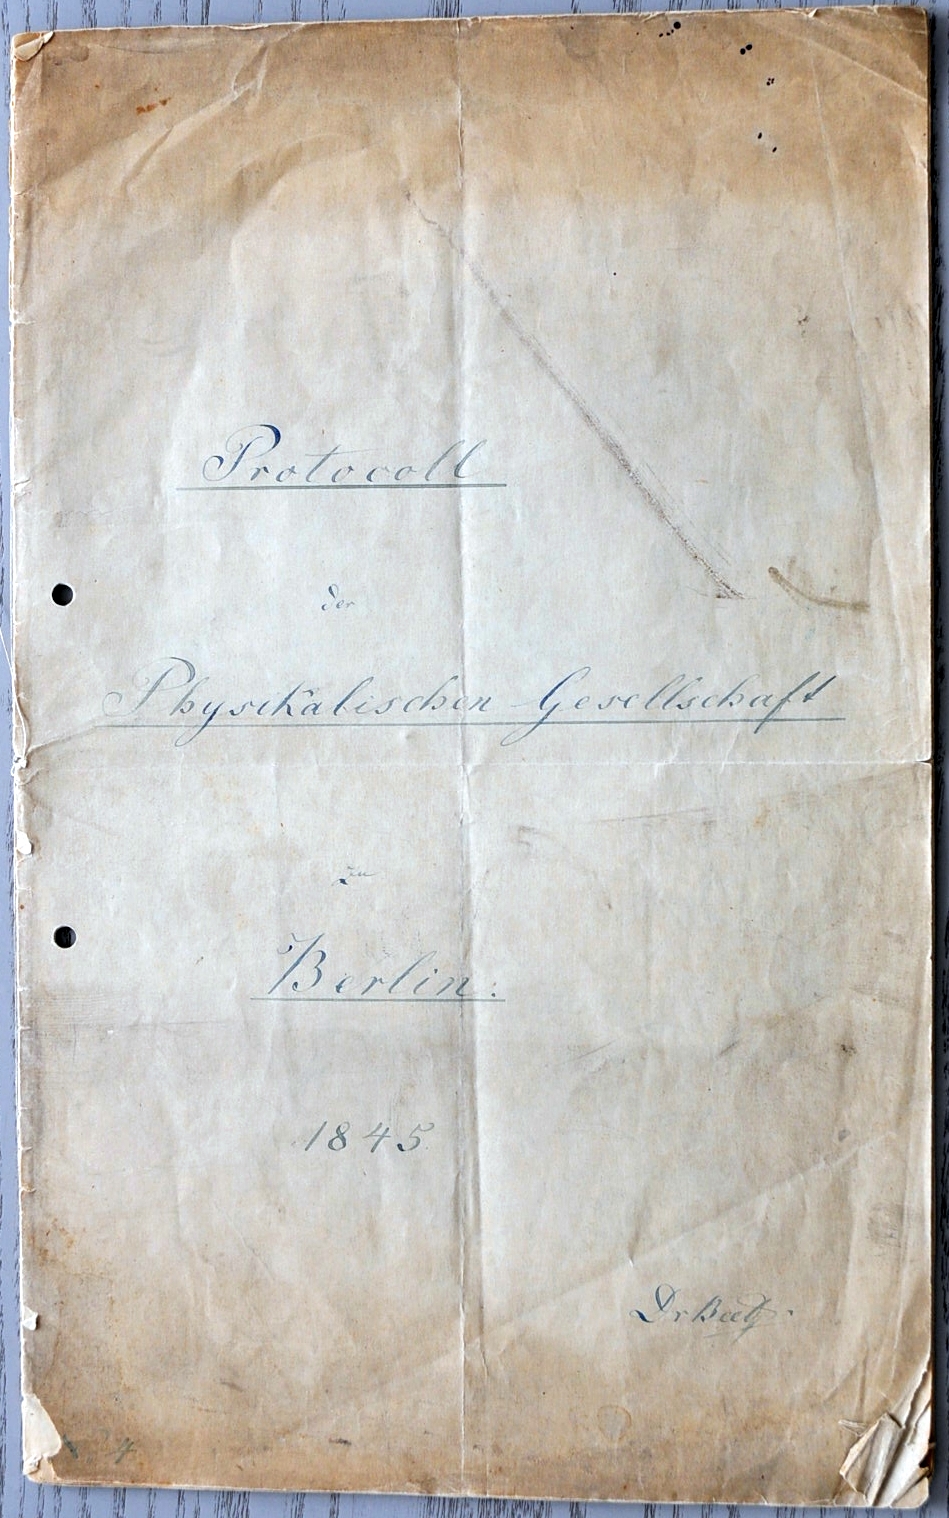 Protocoll
der
Physikalischen Gesellschaft
zu
Berlin.
1845.
Dr Beetz.